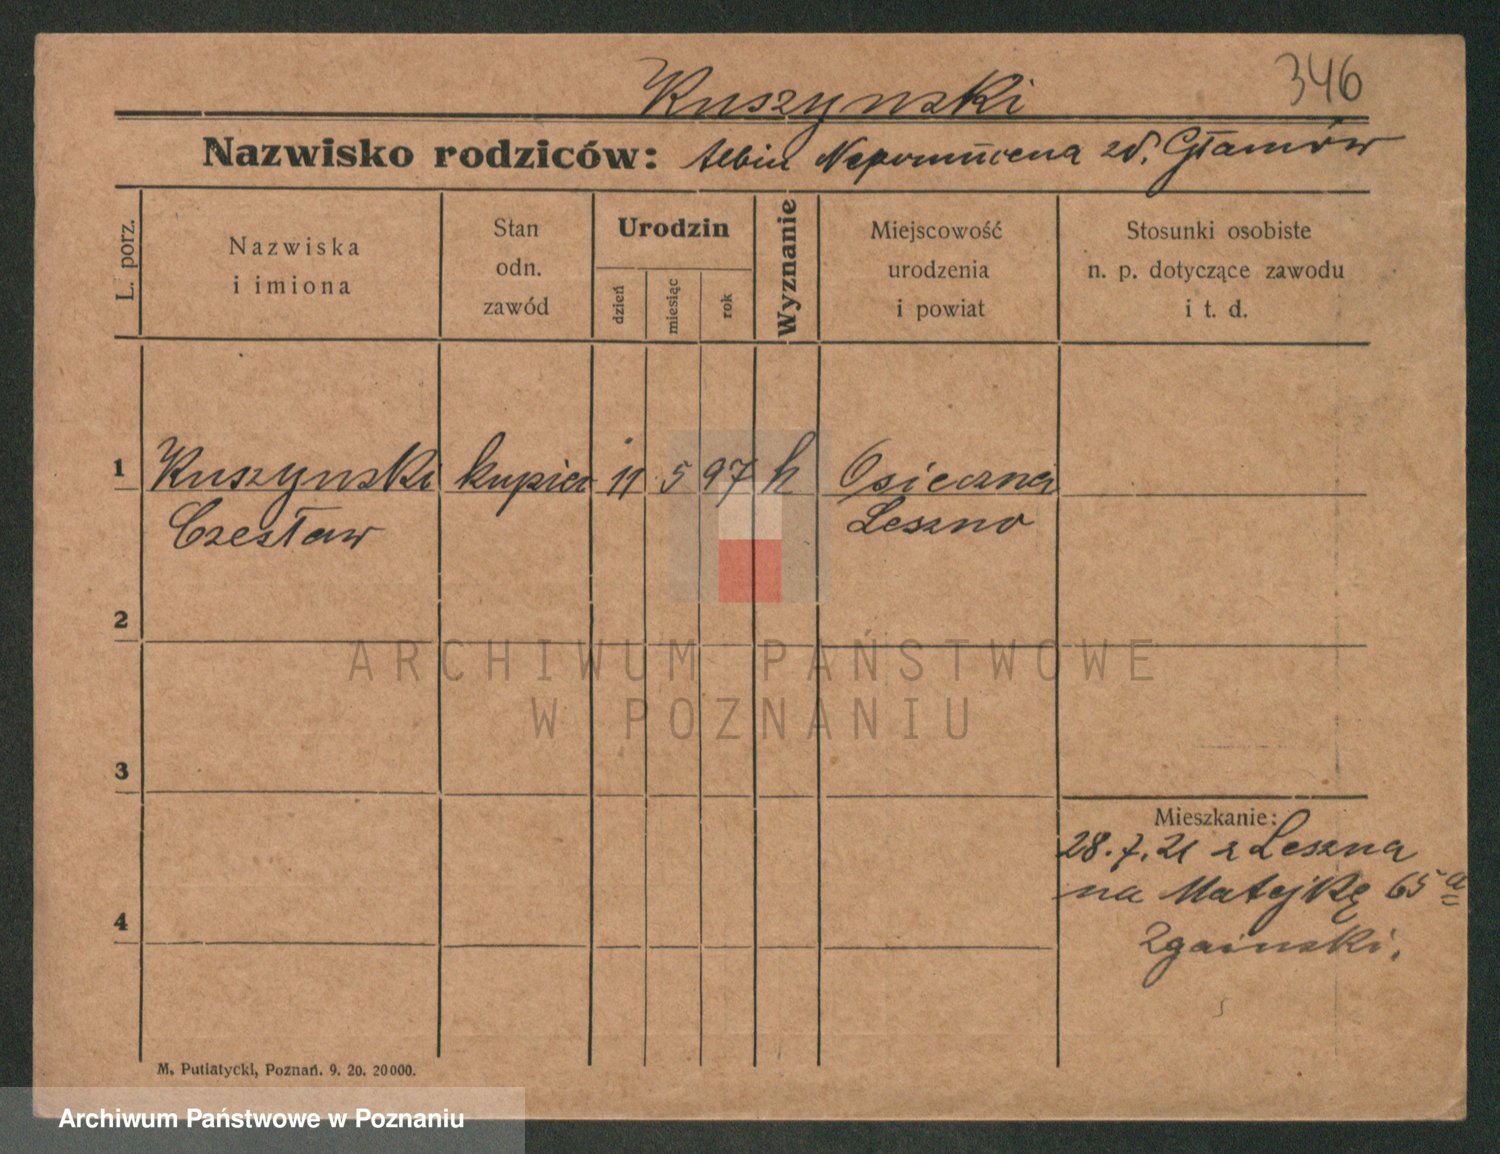 346
Kuszynski
Nazwisko rodziców: Albin Nepomucena zd. Głamów
L. porz.
Nazwiska
i imiona
Stan
odn.
zawód
Urodzin
dzień
miesiąc
rok
Wyznanie
Miejscowość
urodzenia
i powiat
Stosunki osobiste
n. p. dotyczące zawodu
i t. d.
1 Kuszynski kupiec 11 5 97 k Osieczna
Czesław Leszno
2
3
4
Mieszkanie:
28.7.21 z Leszna
na Matejkę 65a
Zgainski.
ARCHIWUM PAŃSTWOWE
W POZNANIU
M. Putiatycki, Poznań. 9. 20. 20000.
Archiwum Państwowe w Poznaniu